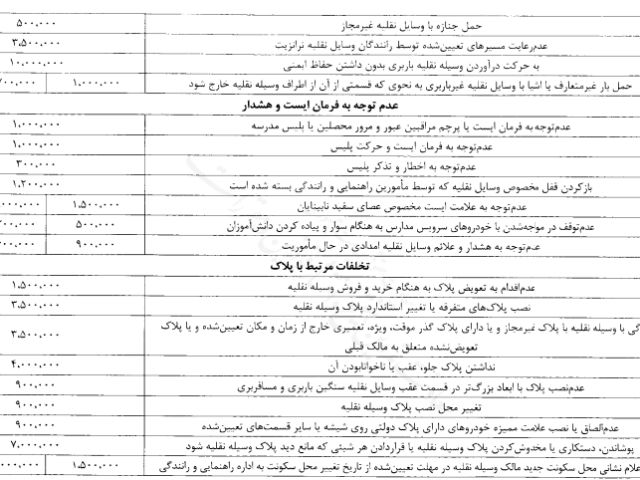 حمل جنازه با وسایل نقلیه غیرمجاز ۵۰۰,۰۰۰
عدم‌رعایت مسیرهای تعیین‌شده توسط رانندگان وسایل نقلیه ترانزیت ۳,۵۰۰,۰۰۰
به حرکت درآوردن وسیله نقلیه باربری بدون داشتن حفاظ ایمنی ۱۰,۰۰۰,۰۰۰
حمل بار غیرمتعارف یا اشیا با وسایل نقلیه غیرباربری به نحوی که قسمتی از آن از اطراف وسیله نقلیه خارج شود ۱,۰۰۰,۰۰۰
عدم توجه به فرمان ایست و هشدار
عدم‌توجه به فرمان ایست یا پرچم مراقبین عبور و مرور محصلین یا پلیس مدرسه ۱,۰۰۰,۰۰۰
عدم‌توجه به فرمان ایست و حرکت پلیس ۱,۰۰۰,۰۰۰
عدم‌توجه به اخطار و تذکر پلیس ۳۰۰,۰۰۰
بازکردن قفل مخصوص وسایل نقلیه که توسط مأمورین راهنمایی و رانندگی بسته شده است ۱,۲۰۰,۰۰۰
عدم‌توجه به علامت ایست مخصوص عصای سفید نابینایان ۱,۵۰۰,۰۰۰
عدم‌توقف در مواجه‌شدن با خودروهای سرویس مدارس به هنگام سوار و پیاده کردن دانش‌آموزان ۵۰۰,۰۰۰
عدم‌توجه به هشدار و علائم وسایل نقلیه امدادی در حال مأموریت ۹۰۰,۰۰۰
تخلفات مرتبط با پلاک
عدم‌اقدام به تعویض پلاک به هنگام خرید و فروش وسیله نقلیه ۱,۵۰۰,۰۰۰
نصب پلاک‌های متفرقه یا تغییر استاندارد پلاک وسیله نقلیه ۳,۵۰۰,۰۰۰
با وسیله نقلیه با پلاک غیرمجاز و یا دارای پلاک گذر موقت، ویژه، تعمیری خارج از زمان و مکان تعیین‌شده و یا پلاک
تعویض‌نشده متعلق به مالک قبلی ۳,۵۰۰,۰۰۰
نداشتن پلاک جلو، عقب یا ناخوانابودن آن ۴,۰۰۰,۰۰۰
عدم‌نصب پلاک با ابعاد بزرگ‌تر در قسمت عقب وسایل نقلیه سنگین باربری و مسافربری ۹۰۰,۰۰۰
تغییر محل نصب پلاک وسیله نقلیه ۹۰۰,۰۰۰
عدم‌الصاق یا نصب علامت ممیزه خودروهای دارای پلاک دولتی روی شیشه یا سایر قسمت‌های تعیین‌شده ۹۰۰,۰۰۰
پوشاندن، دستکاری یا مخدوش‌کردن پلاک وسیله نقلیه یا قراردادن هر شیئی که مانع دید پلاک وسیله نقلیه شود ۷,۰۰۰,۰۰۰
نشانی محل سکونت جدید مالک وسیله نقلیه در مهلت تعیین‌شده از تاریخ تغییر محل سکونت به اداره راهنمایی و رانندگی ۱,۵۰۰,۰۰۰